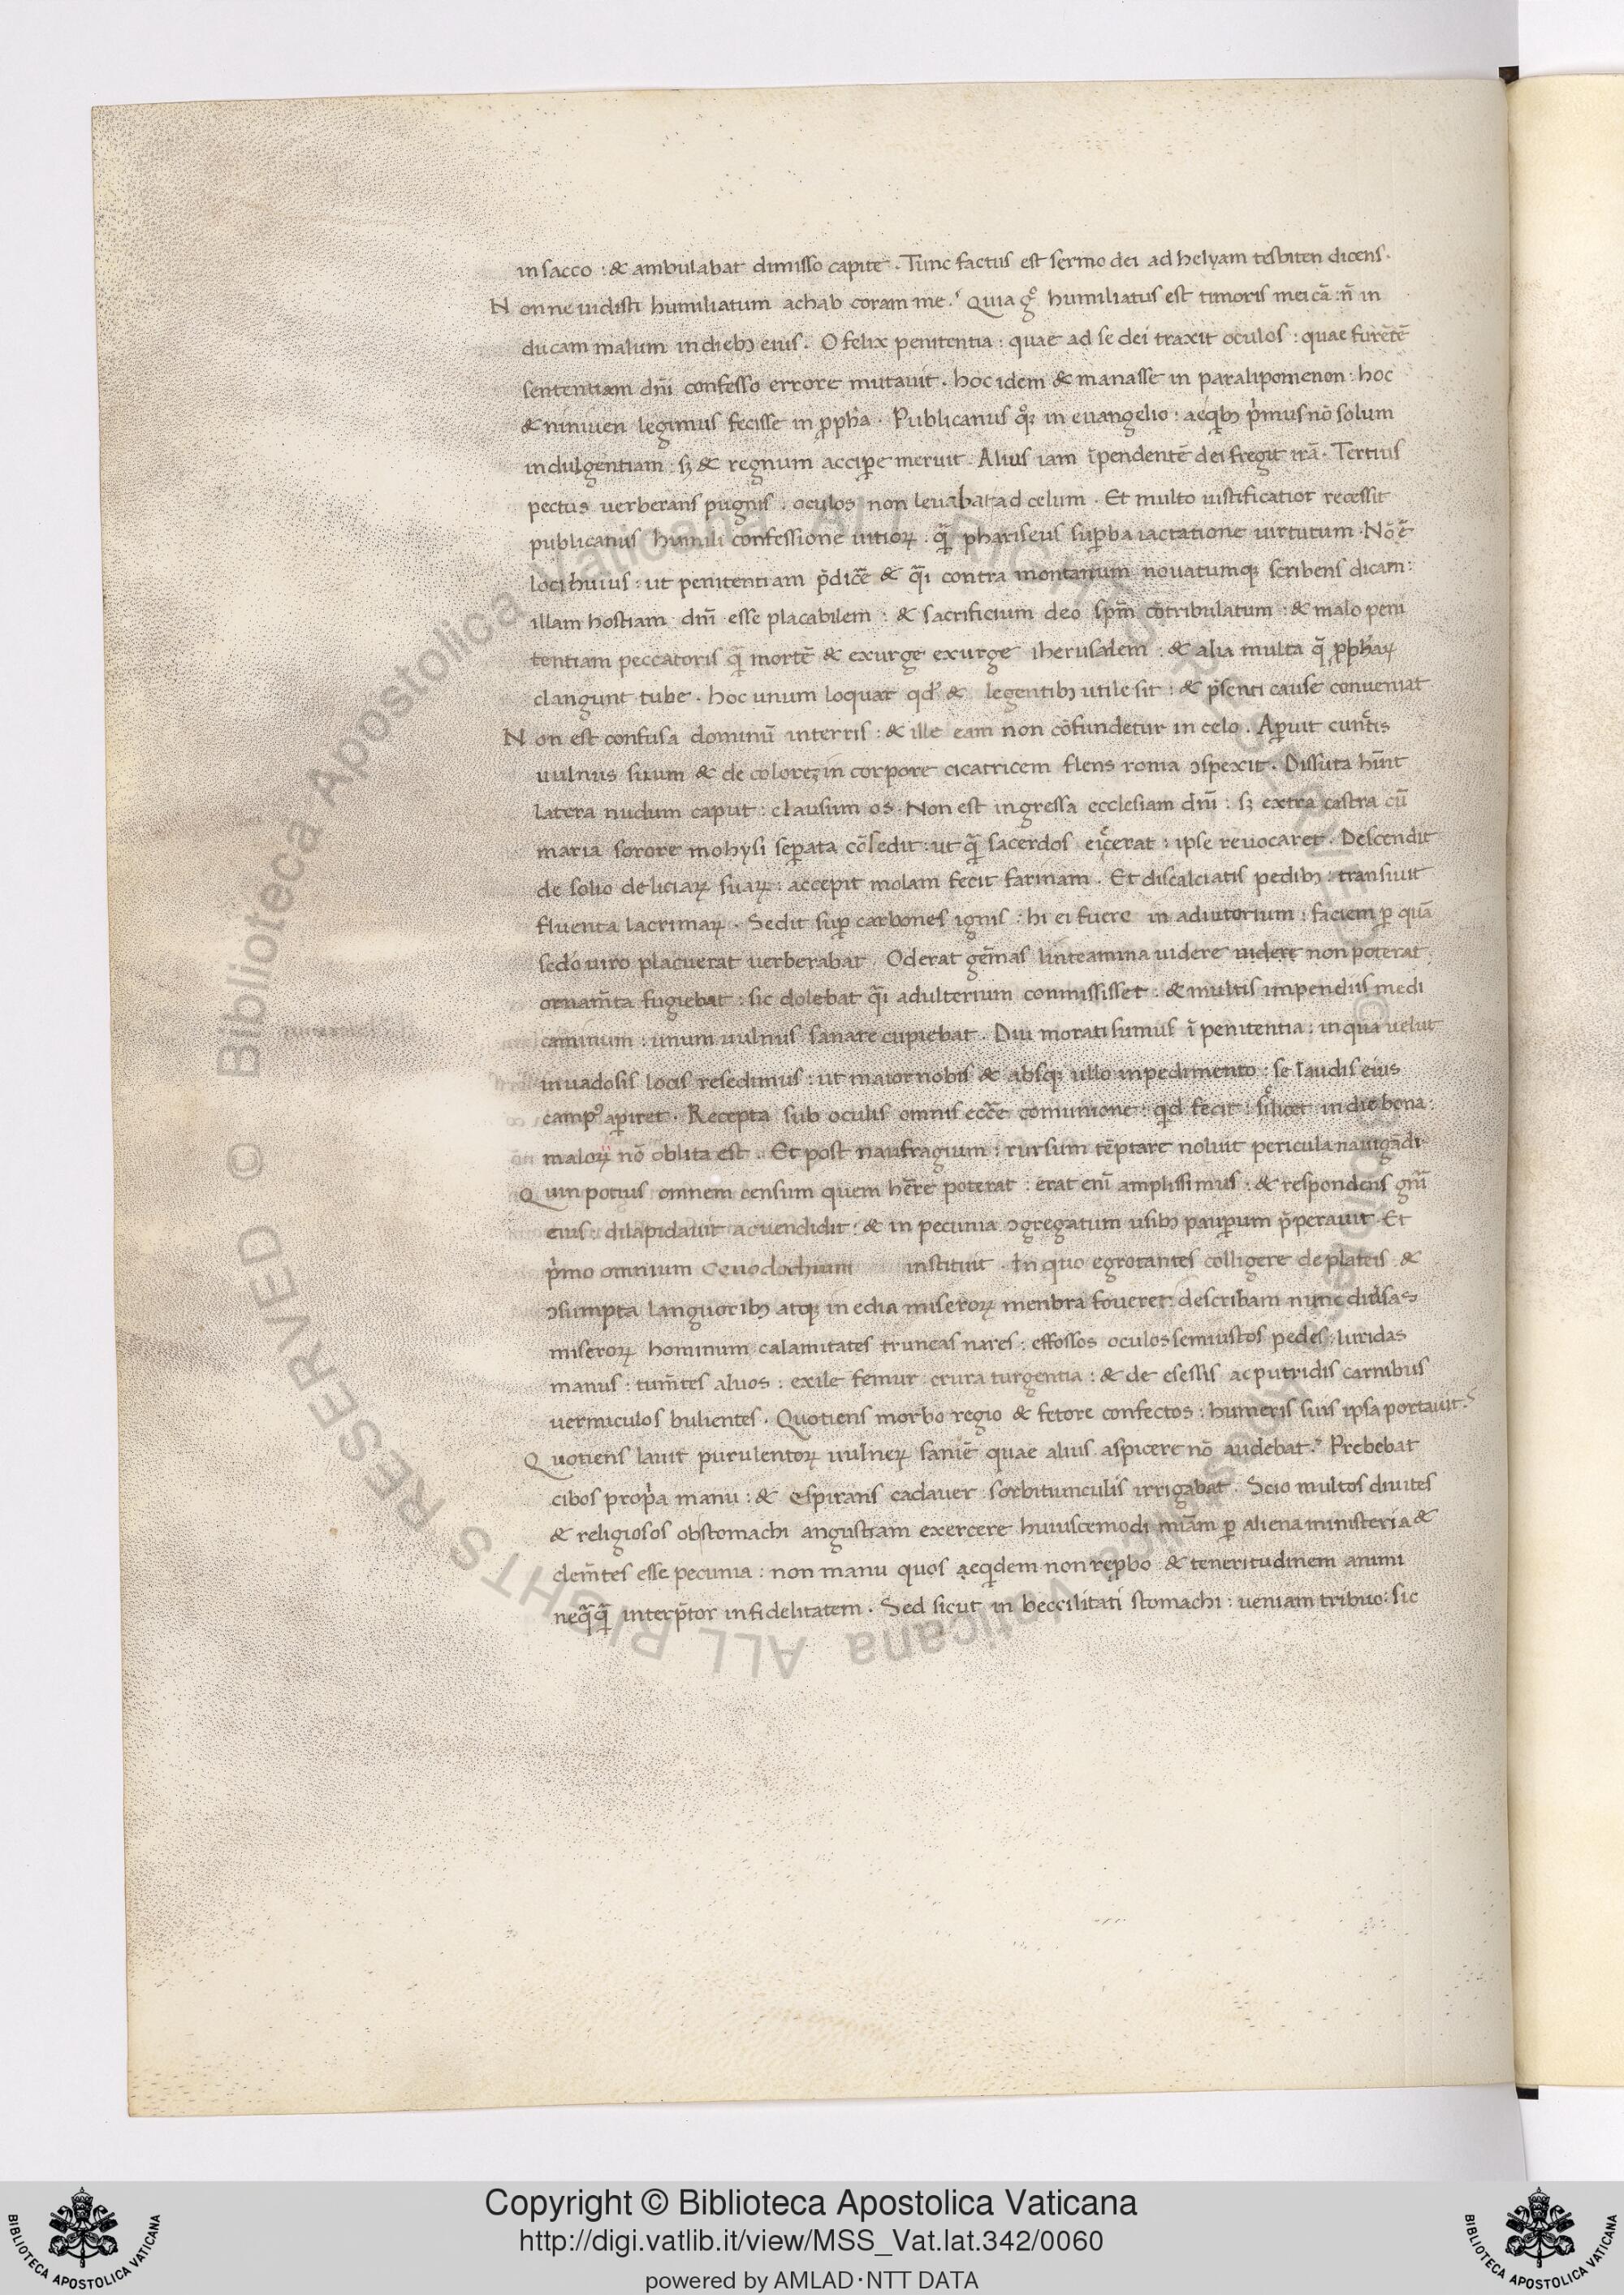 in sacco : & ambulabat dimisso capite . Tunc factus est sermo dei ad helyam tesbiten dicens .
N on ne uidisti humiliatum achab coram me .ˢ Quia gͦ humiliatus est timoris mei cā : n̄ in
ducam malum in dieb; eius . O felix penitentia : quae ad se dei traxit oculos : quae furētē
sententiam dn̄i confesso errore mutauit . hoc idem & manasse in paralipomenon : hoc
& niniuen legimus fecisse in ꝓpha . Publicanus qͦꝫ in evangelio : a eqib; pͥmus nō solum
indulgentiam : sꝫ & regnum acciꝑe meruit . Alius iam īpendentē dei fregit irā . Tertius
pectus uerberans pugnis : oculos non leuabat ad celum . Et multo iustificatior recessit
publicanus humili confessione uitioꝝ : qͣ̄ phariseus suꝑba iactatione uirtutum . Nō ē
loci huius : ut penitentiam p̄dicē & qͣ̄i contra montanum nouatumqꝫ scribens dicam :
illam hostiam dn̄i esse placabilem : & sacrificium deo sp̄m cōtribulatum : & malo peni
tentiam peccatoris qͣ̄ mortē & exurge exurge iherusalem : & alia multa q̄ ꝓphaꝝ
clangunt tube . hoc unum loquar qd̓ & legentib; utile sit : & p̄senti cause conueniat
N on est confusa dominū in terris : & ille eam non cōfundetur in celo . Aꝑuit cunctis
uulnus suum & decolorez in corpore cicatricem flens roma ↄspexit . Dissuta hn̄t
latera nudum caput : clausum os . Non est ingressa ecclesiam dn̄i : sꝫ extra castra cū
maria sorore mohysi seꝑata cōsedit : ut qͣ̄ sacerdos eiecerat : ipse reuocaret . Descendit
de solio deliciaꝝ suaꝝ : accepit molam fecit farinam . Et discalciatis pedib; : transiuit
fluenta lacrimaꝝ . Sedit suꝑ carbones ignis : hi ei fuere in adiutorium : faciem ꝑ quā
sedo uiro placuerat uerberabat . Oderat gēmas linteamina uidere uidere non poterat
ornam̄ta fugiebat : sic dolebat qͣ̄i adulterium conmississet : & multis impendiis medi
caminum : unum uulnus sanare cupiebat . Diu morati sumus ī penitentia : in qua uelut
in uadosis locis resedimus : ut maior nobis & absqꝫ ullo inpedimento : se laudis eius
campꝰ aꝑiret . Recepta sub oculis omnis ecc̄e comunione : qd fecit : silicet in die bona :
maloꝝ nō oblita est . Et post naufragium : rursum tēptare noluit pericula nauigādi
Q uin potius omnem censum quem hēre poterat : erat enī amplissimus : & respondens gn̄i
eius : dilapidauit ac uendidit : & in pecunia ↄgregatum usib; pauꝑum p̄perauit . Et
pͥmo omnium cenodochium instituit . In quo egrotantes colligere de plateis : &
ↄsumpta languorib; atqꝫ inedia miseroꝝ menbra foueret : describam nunc diuersas
miseroꝝ hominum calamitates truncas nares : effossos oculos semiustos pedes : luridas
manus : tum̄tes aluos : exile femur crura turgentia : & de esessis ac putridis carnibus
uermiculos bulientes . Quotiens morbo regio & fetore confectos : humeris suis ipsa portauit .ˢ
Q uotiens lauit purulentoꝝ uulneꝝ saniē quae alius aspicere nō audebat .ˢ Prebebat
cibos propͥa manu : & espirans cadauer sorbitiunculis irrigabat . Scio multos diuites
& religiosos ob stomachi angustiam exercere huiuscemodi miām ꝑ aliena ministeria &
clem̄tes esse pecunia : non manu quos a eqidem non reꝑbo & teneritudinem animi
neqͣ̄qͣ̄ interp̄tor infidelitatem . Sed sicut in beccilitati stomachi : ueniam tribuo : sic
Copyright © Biblioteca Apostolica Vaticana
http://digi.vatlib.it/view/MSS_Vat.lat.342/0060
powered by AMLAD·NTT DATA
BIBLIOTECA APOSTOLICA VATICANA
BIBLIOTECA APOSTOLICA VATICANA